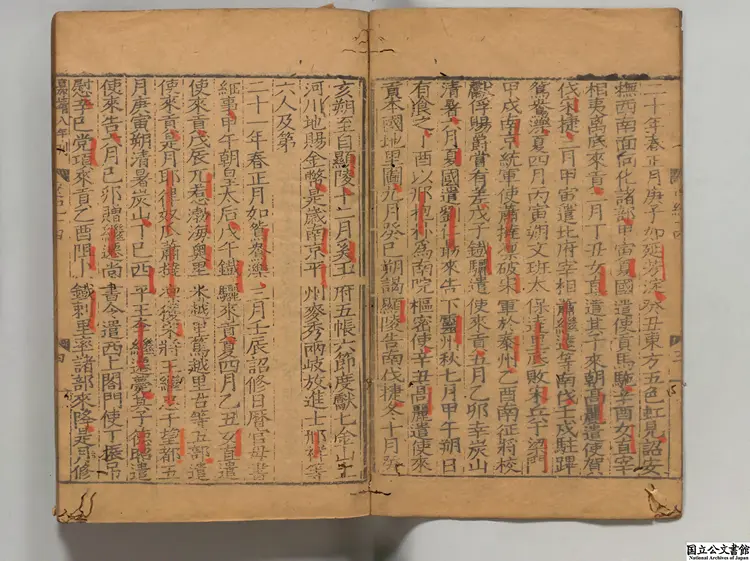 二十年春正月庚子如延芳淀癸丑東方五色虹見詔安
撫西南面向化諸部甲寅夏國遣使貢馬駞辛酉女直宰
相夷离底來貢二月丁丑女直遣其子來朝高麗遣使賀
伐宋捷三月甲寅遣北府宰相蕭繼遠等南伐壬戌駐蹕
鴛鴦濼夏四月丙寅朔文班太保達里底敗宋兵于梁門
甲戌南京統軍使蕭撻凜破宋軍於泰州乙酉南征將校
獻俘賜爵賞有差戊子鐵驪遣使來貢五月乙卯幸炭山
清暑六月夏國遣劉仁勗來告下靈州秋七月甲午朔日
有食之丁酉以邢抱朴爲南院樞密使辛丑高麗遣使來
貢本國地里圖九月癸巳朔謁顯陵告南伐捷冬十月癸
亥朔至自顯陵十二月奚王府五帳六節度獻七金山土
河川地賜金幣是歲南京平州麥秀兩歧放進士邢祥等
六人及第
二十一年春正月如鴛鴦濼三月壬辰詔修日曆官毋書
細事甲午朝皇太后戊午鐵驪來貢夏四月乙丑女直遣
使來貢戊辰兀惹渤海奧里米越里篤越里古等五部遣
使來貢是月耶律奴瓜蕭撻凜獲宋將王繼忠于望都五
月庚寅朔清暑炭山丁巳西平王李繼遷薨其子德昭遣
使來告六月己卯贈繼遷尚書令遣西上閤門使丁振吊
慰辛巳党項來貢乙酉阻卜鐵剌里率諸部來降是月修
嘉靖八年刊
国立公文書館
National Archives of Japan